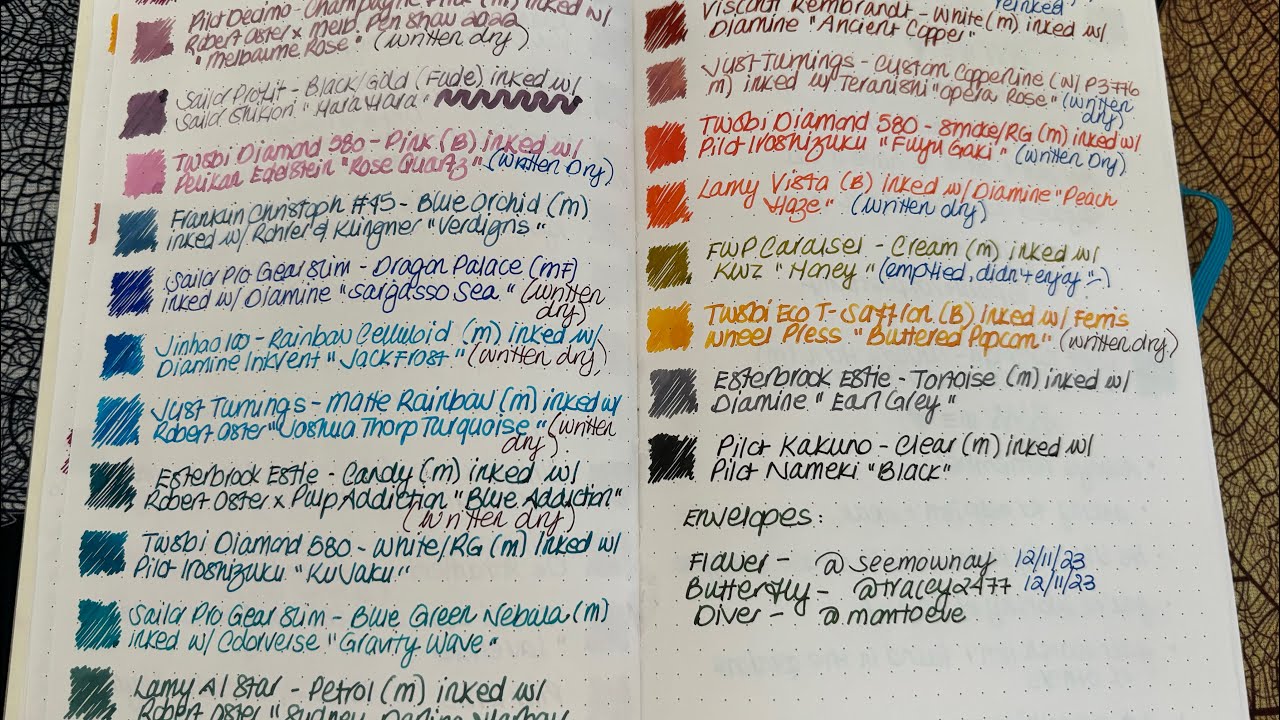 Pilot Decimo - Champagne Pink (m) inked w/
Robert Oster x melb. Pen Show 2022
"Melbourne Rose" (written dry)
Sailor Profit - Black/Gold (Fude) inked w/
Sailor Shikiori "Hara Hara"
Twsbi Diamond 580 - Pink (B) inked w/
Pelikan Edelstein "Rose Quartz" (written Dry)
Franklin Christoph #45 - Blue Orchid (m)
inked w/ Rohrer & Klingner "Verdigris"
Sailor Pro Gear Slim - Dragon Palace (mf)
inked w/ Diamine "Sargasso Sea" (written
dry)
Jinhao 100 - Rainbow Celluloid (m) inked w/
Diamine Inkvent "Jack Frost" (written dry)
Just Turnings - matte Rainbow (m) inked w/
Robert Oster "Joshua Thorp Turquoise" (written
dry)
Esterbrook Estie - Candy (m) inked w/
Robert Oster x Pulp Addiction "Blue Addiction"
(written dry)
Twsbi Diamond 580 - White/RG (m) inked w/
Pilot Iroshizuku "Ku Jaku"
Sailor Pro Gear Slim - Blue Green Nebula (m)
inked w/ Colorverse "Gravity Wave"
Lamy Al Star - Petrol (m) inked w/
Robert Oster "Sydney Darling Harbour
reinked
Visconti Rembrandt - White (m) inked w/
Diamine "Ancient Copper"
Just Turnings - Custom Copperline (w/ P3776
m) inked w/ Teranishi "Opera Rose" (written
dry)
Twsbi Diamond 580 - Smoke/RG (m) inked w/
Pilot Iroshizuku "Fuyu Gaki" (written Dry)
Lamy Vista (B) inked w/ Diamine "Peach
Haze" (written dry)
FWP Carousel - Cream (m) inked w/
KWZ "Honey" (emptied, didn't enjoy :-)
Twsbi Eco T - Saffron (B) inked w/ Ferris
Wheel Press "Buttered Popcorn" (written dry)
Esterbrook Estie - Tortoise (m) inked w/
Diamine "Earl Grey"
Pilot Kakuno - Clear (m) inked w/
Pilot Nameki "Black"
Envelopes:
Flower - @seemownay 12/11/23
Butterfly - @tracey2477 12/11/23
Diver - @mamtoeve